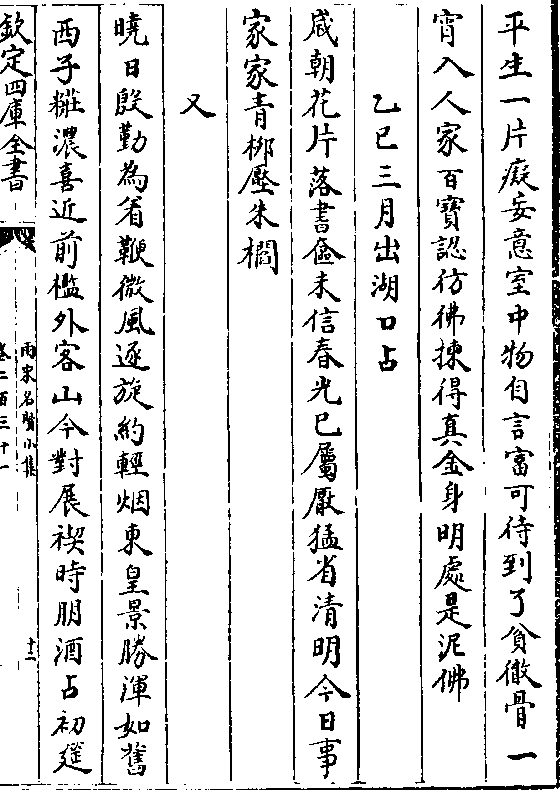 平生一片癡妄意室中物自言富可待到了貧徹骨一
宵入人家百寶認彷彿揀得真金身明處是泥佛
乙巳三月出湖口占
咸朝花片落書龕未信春光已屬厭猛省清明今日事
家家青柳壓朱櫚
又
曉日殷勤為著鞭微風逐旋約輕烟東皇景勝渾如舊
西子糚濃喜近前檻外客山今對展禊時朋酒占初筵
欽定四庫全書
兩宋名賢小集
卷二百三十一
十二